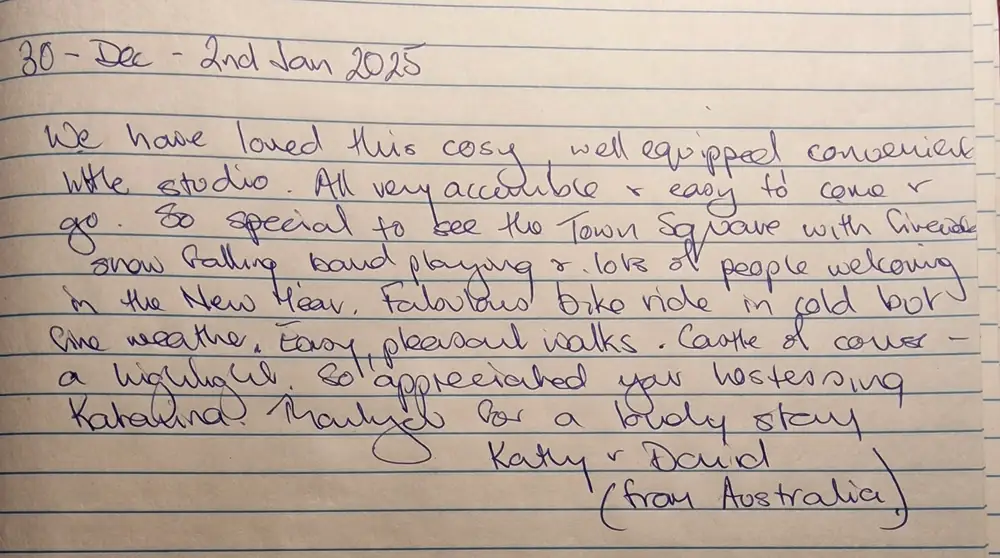 30 - Dec - 2nd Jan 2025
We have loved this cosy, well equipped convenient
little studio. All very accessible & easy to come &
go. So special to see the Town Square with fireworks
snow falling band playing & lots of people welcoming
in the New Year. Fabulous bike ride in cold but
fine weather. Easy, pleasant walks. Castle of course -
a highlight. So appreciated your hostessing
Katarina. Thankyou for a lovely stay
Kathy & David
(from Australia)